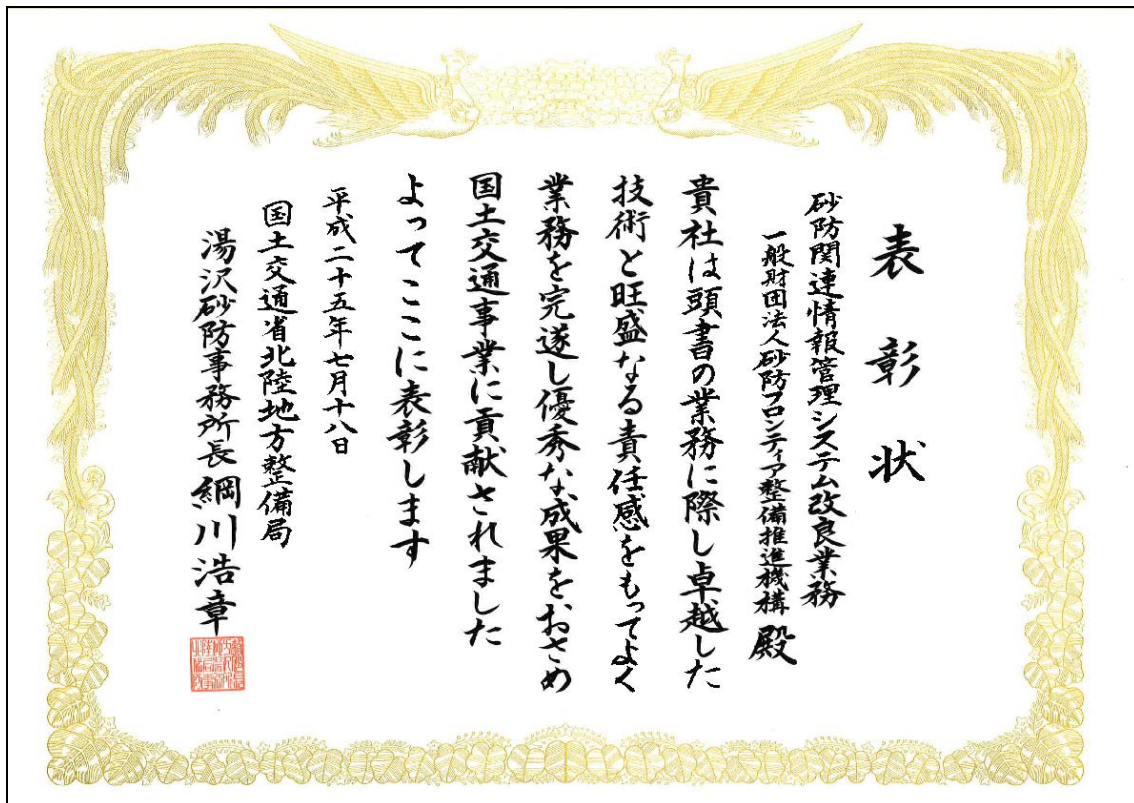 表彰状
砂防関連情報管理システム改良業務
一般財団法人砂防フロンティア整備推進機構 殿
貴社は頭書の業務に際し卓越した
技術と旺盛なる責任感をもってよく
業務を完遂し優秀な成果をおさめ
国土交通事業に貢献されました
よってここに表彰します
平成二十五年七月十八日
国土交通省北陸地方整備局
湯沢砂防事務所長 綱川浩章